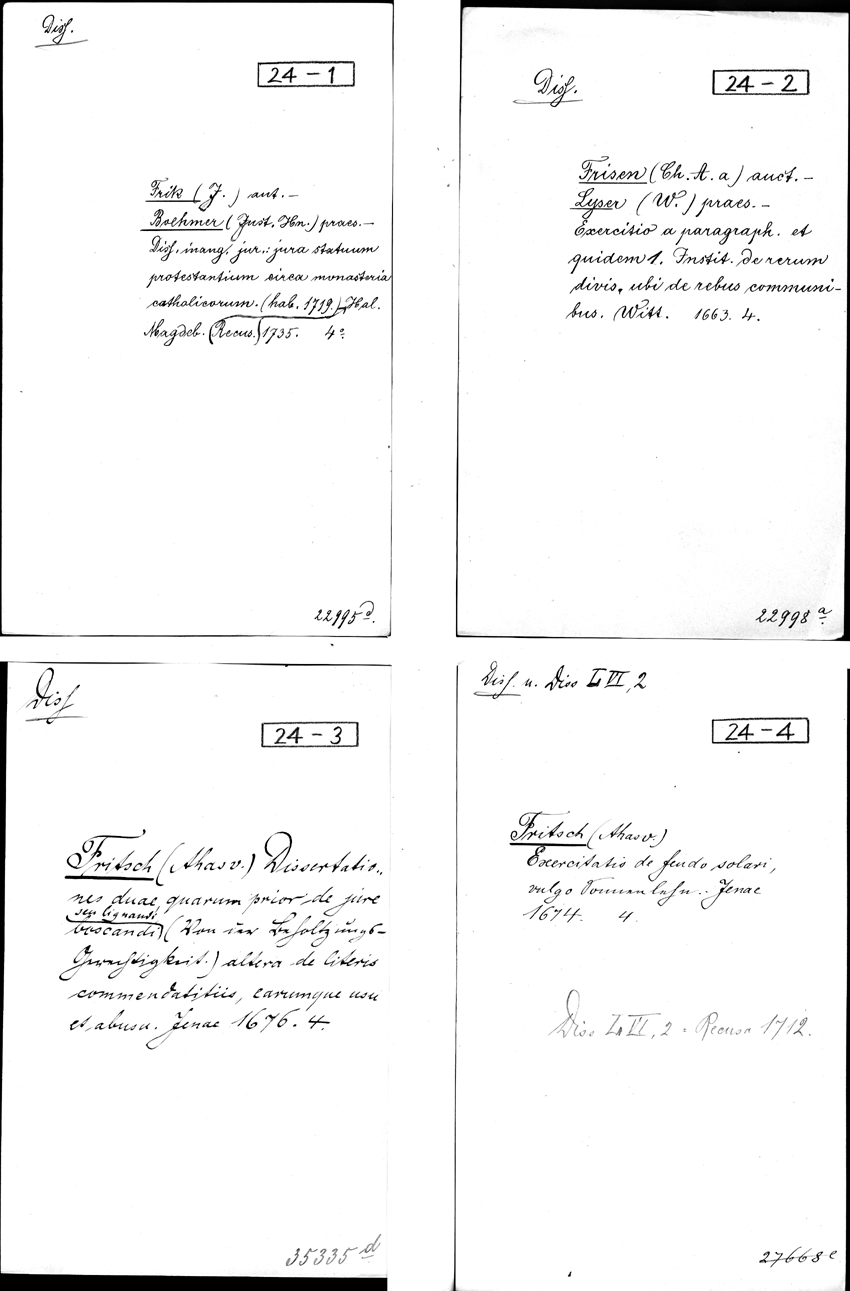 Diss.
24-1
Frik (J.) aut. –
Boehmer (Just. Hn.) praes. –
Diss. inaug. jur.: jura statuum
protestantium circa monasteria
catholicorum. (hab. 1719.) Hal.
Magdeb. (Recus.) 1735. 4º
22995d.
Diss.
24-2
Frisen (Ch. A. a) auct. –
Lyser (W.) praes. –
Exercitio a paragraph. et
quidem 1. Instit. de rerum
divis, ubi de rebus communi-
bus. Witt. 1663. 4.
22998a
Diss
24-3
Fritsch (Ahasv.) Dissertatio-
nes duae, quarum prior de jure
seu lignandi
boscandi (Von der Beholtzungs-
Gerechtigkeit.) altera de literis
commendatitiis, earumque usu
et abusu. Jenae 1676. 4.
35335d
Diss. u. Diss L VI, 2
24-4
Fritsch (Ahasv.)
Exercitatio de feudo solari,
vulgo Sonnenlehn. Jenae
1674. 4.
Diss L VI, 2 = Recusa 1712.
27668c